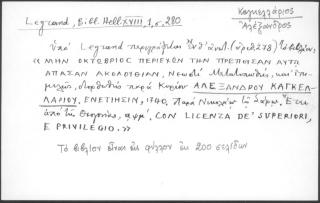 Legrand, Bibl. Hell. XVIII, 1, σ. 280
Καγκελλάριος
Ἀλέξανδρος
Ὑπὸ Legrand περιγράφεται (ἀριθ. 278) τὸ βιβλίον,
« ΜΗΝ ΟΚΤΩΒΡΙΟΣ ΠΕΡΙΕΧΩΝ ΤΗΝ ΠΡΕΠΟΥΣΑΝ ΑΥΤΩ
ΑΠΑΣΑΝ ΑΚΟΛΟΥΘΙΑΝ, Νεωστὶ Μετατυπωθεὶς, καὶ ἐπι-
μελῶς, διορθωθεὶς παρὰ Κυρίου ΑΛΕΞΑΝΔΡΟΥ ΚΑΓΚΕΛ-
ΛΑΡΙΟΥ, ΕΝΕΤΙΗΣΙΝ, 1740, Παρὰ Νικολάῳ τῷ Σάρῳ. Ἔτει
ἀπὸ τῆς Θεογονίας, αψμʹ, CON LICENZA DE' SUPERIORI,
E PRIVILEGIO. »
Τὸ βιβλίον εἶναι εἰς φύλλον ἐκ 200 σελίδων